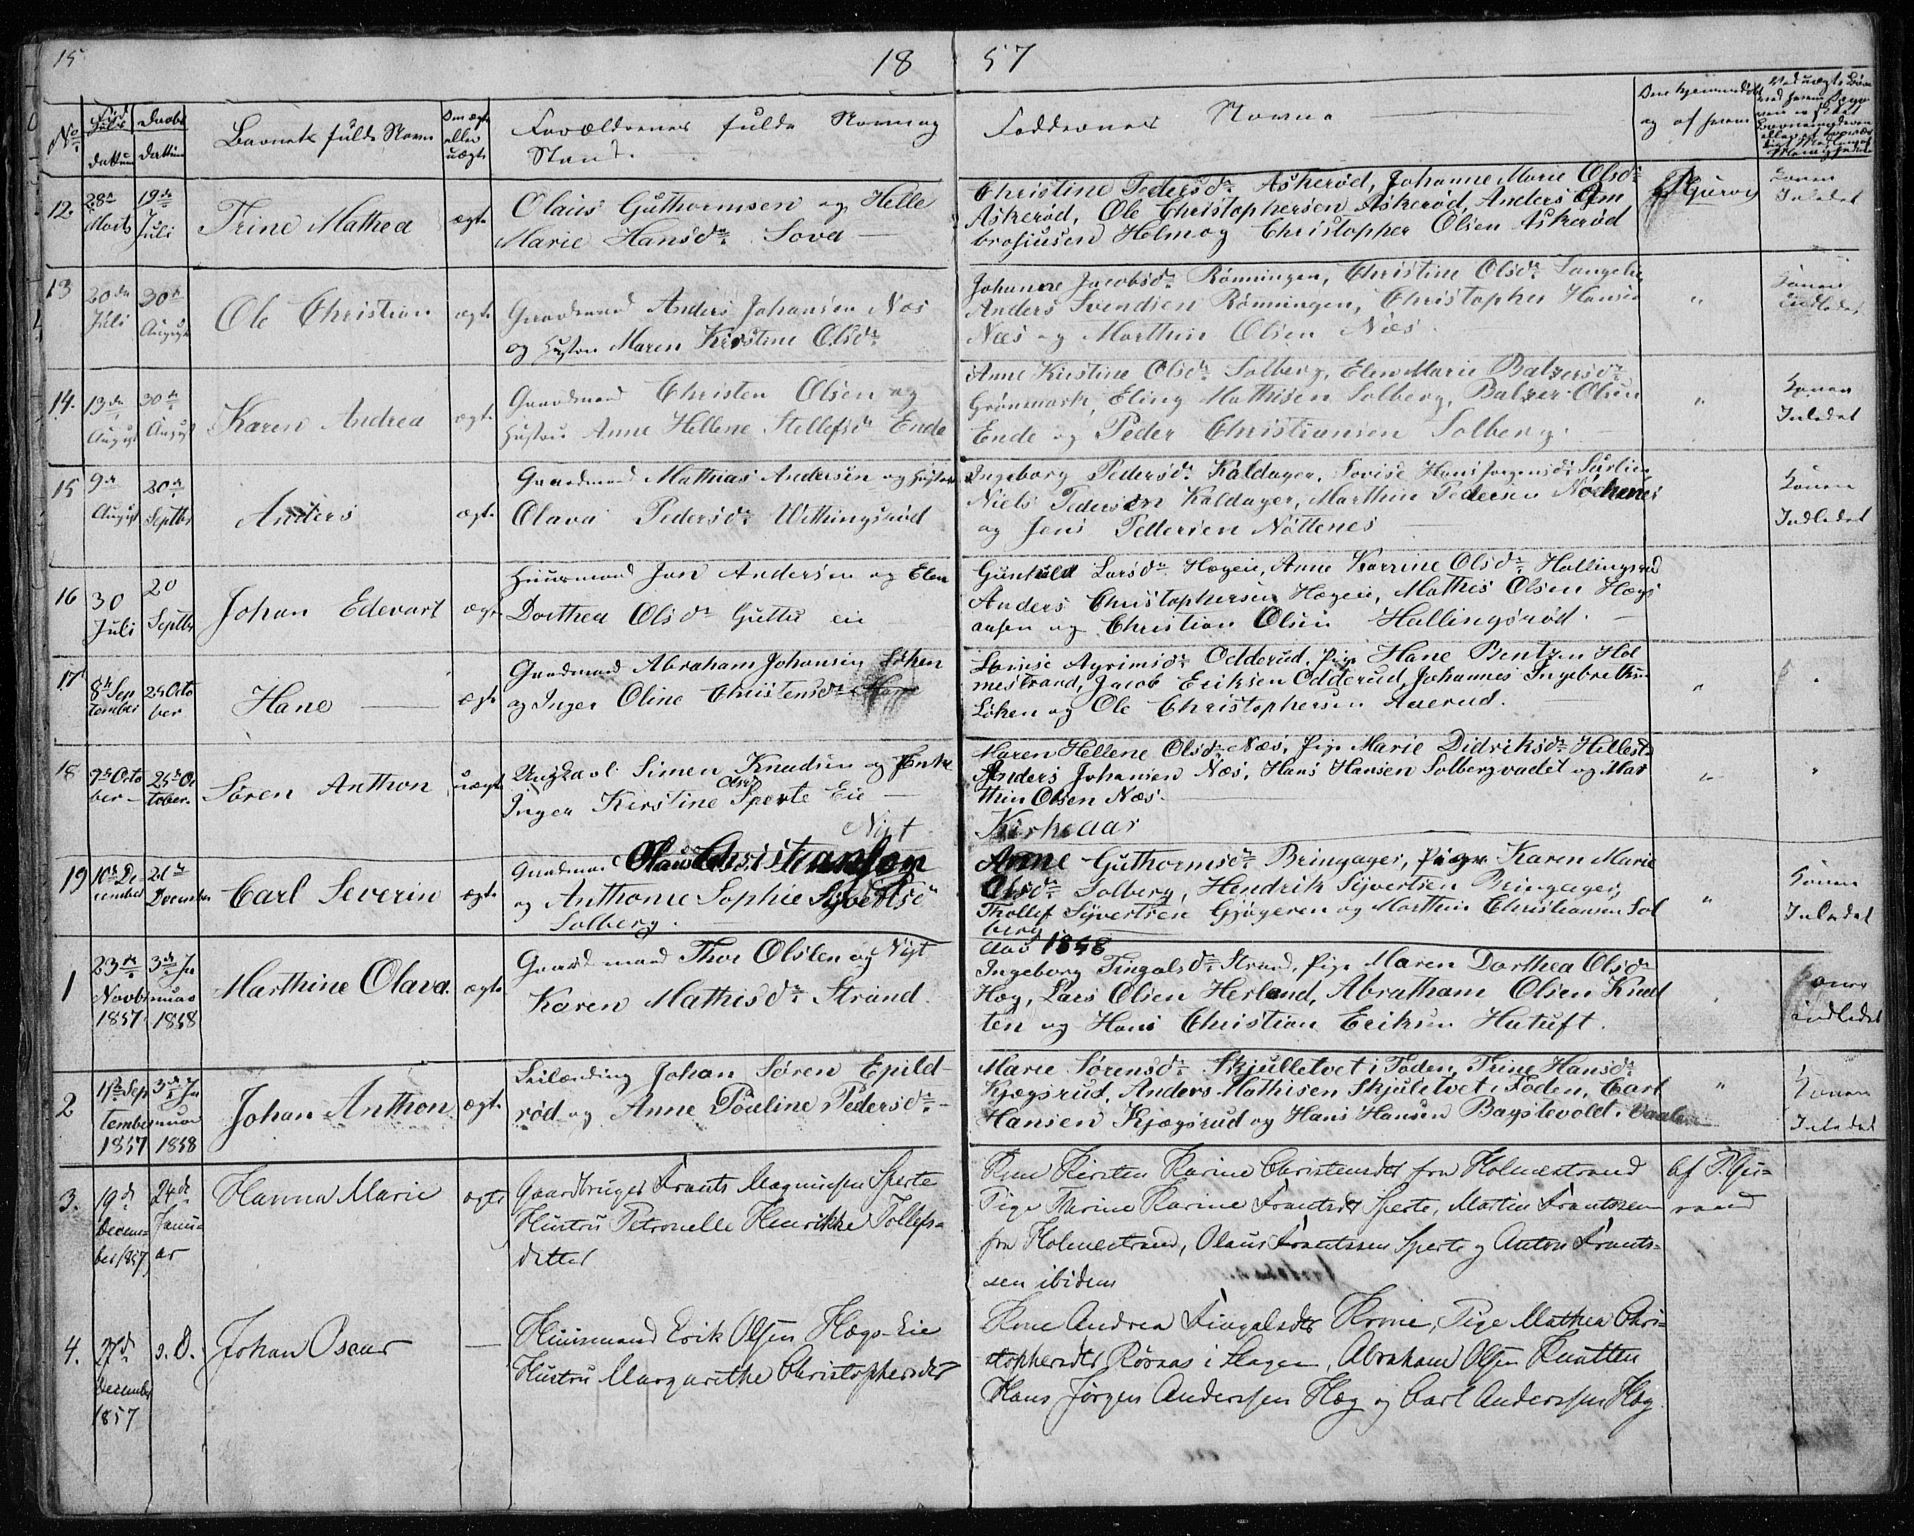 15
18 57
No
Fød
dattum
Daabs
dattum
Barnets fulde Navn
Om ægte
eller
uægte
Forældrenes fulde Navn og
Stand.
Faddernes Navne
og af hvem
12. 28de Marts 19de Juli Trine Mathea ægte
Olaus Guthormsen og Helle
Marie Hansdr. Sova
Christine Pedersdr. Askerød, Johanne Marie Olsdr.
Askerød, Ole Christophersen Askerød, Anders Am
brosiusen Holm og Christopher Olsen Askerød
Konen
Inledet
13 20de Juli 30te August Ole Christian ægte
Gaardmand Anders Johansen Næs
og Hustru Maren Kirstine Olsdr.
Johanne Jacobsdr. Rønningen, Christine Olsdr. Langelie
Anders Svendsen Rønningen, Christopher Hansen
Næs og Marthin Olsen Næs.
"
Konen
Indledet
14. 13de August 30te August Karen Andrea ægte
Gaardmand Christen Olsen og
Hustru Anne Hellene Stellefsdr Ende
Anne Kirstine Olsdr. Solberg, Elen Marie Balzersdr.
Grønmark, Eling Mathisen Solberg, Balzer Olsen
Ende og Peder Christiansen Solberg.
"
Konen
Inledet
15 9de August 20de Septbr Anders ægte
Gaardmand Mathias Andersen og Hustru
Olava Pedersdr. Wethingsrød
Ingeborg Pedersdr. Kaldager, Lovise Hans Jørgensdr Sørlien
Niels Pedersen Kaldager, Marthin Pedersen Nøttenes
og Jens Pettersen Nøttenes
Konen
Indledet
16 30 Juli 20 Septbr Johan Edevart ægte
Huusmand Jon Andersen og Elen
Dorthea Olsdr Guttu eie
Gunhild Larsdr. Hægeie, Anne Karrine Olsdr. Hallingsrød
Anders Christophersen Hægeie, Mathis Olsen Hægs
aasen og Christian Olsen Hallingsrød.
17 8de September 25 October Hane ægte
Gaardmand Abraham Johansen Løken
og Inger Oline Christensdr.
Lovise Agrimsdr. Odderud, Pige Hane Bentzen Hol
mestrand, Jacob Eriksen Odderud, Johannes Ingebrethsen
Løken og Ole Christophersen Aaerud.
"
"
18 7de October 25de October. Søren Anthon uægte
Ungkarl Simen Knudsen og Enke
Inger Kirstine Olsdr Sperte Eie
Maren Hellene Olsdr. Næs, Pige Marie Didriksdr. Hillestd
Anders Johansen Næs, Hans Hansen Solbergvadet og Mar
thin Olsen Næs.
"
"
Nyt
Kirkeaar
19 10de December 26de December Carl Severin ægte
Gaardmand Olaus Christiansen
og Anthone Sophie Syvertsdr
Solberg.
Anne Guthormsdr. Bringager, Pige Karen Marie
Olsdr. Solberg, Hendrik Syvertsen Bringager,
Thollef Syvertsen Gjøgeren og Marthin Christiansen Sol
berg
"
Konen
Inledet
Nyt Aar 1858
1 23de Novbr 1857. 3de Januar 1858 Marthine Olava. ægte
Gaardmand Thor Olsen og
Karen Mathisdr. Strand.
Ingeborg Fingalsdr. Strand, Pige Maren Dorthea Olsdr
Hæg, Lars Olsen Herland, Abraham Olsen Knat
ten og Hans Christian Eriksen Hutuft.
Konen
indledet
2 11te September 1857 3de Januar 1858 Johan Anthon. ægte
Leilænding Johan Søren Epild-
rød og Anne Pouline Pedersdr.
Marie Sørensdr. Skjulletvet i Foden, Trine Hansdr.
Kjøgsrud, Anders Mathisen Skjuletvet i Foden, Carl
Hansen Kjøgsrud og Hans Hansen Bagstevold. Vaale
"
Konen
Inledet
3. 19de December 1857 24de Januar Hanna Marie ægte
Gaardbruger Frants Magnussen Sperte
Hustru Petronelle Henrikke Tollefs-
datter
Kone Kirsten Karine Christensdtr fra Holmestrand
Pige Karine Karine Frantsdtr Sperte, Martin Frantssen
fra Holmestrand, Olaus Frantssen Sperte og Anton Frants-
sen ibidem
4. 27de December 1857 s. D. Johan Oscar —
Huusmand Erik Olsen Hægs-Eie
Hustru Margarethe Christophersdtr
Kone Andrea Fingalsdtr Horne, Pige Mathea Chri-
stophersdtr Rørnas i Slagen, Abraham Olsen Knatten
Hans Jørgen Anderssen Hæg og Carl Anderssen Hæg